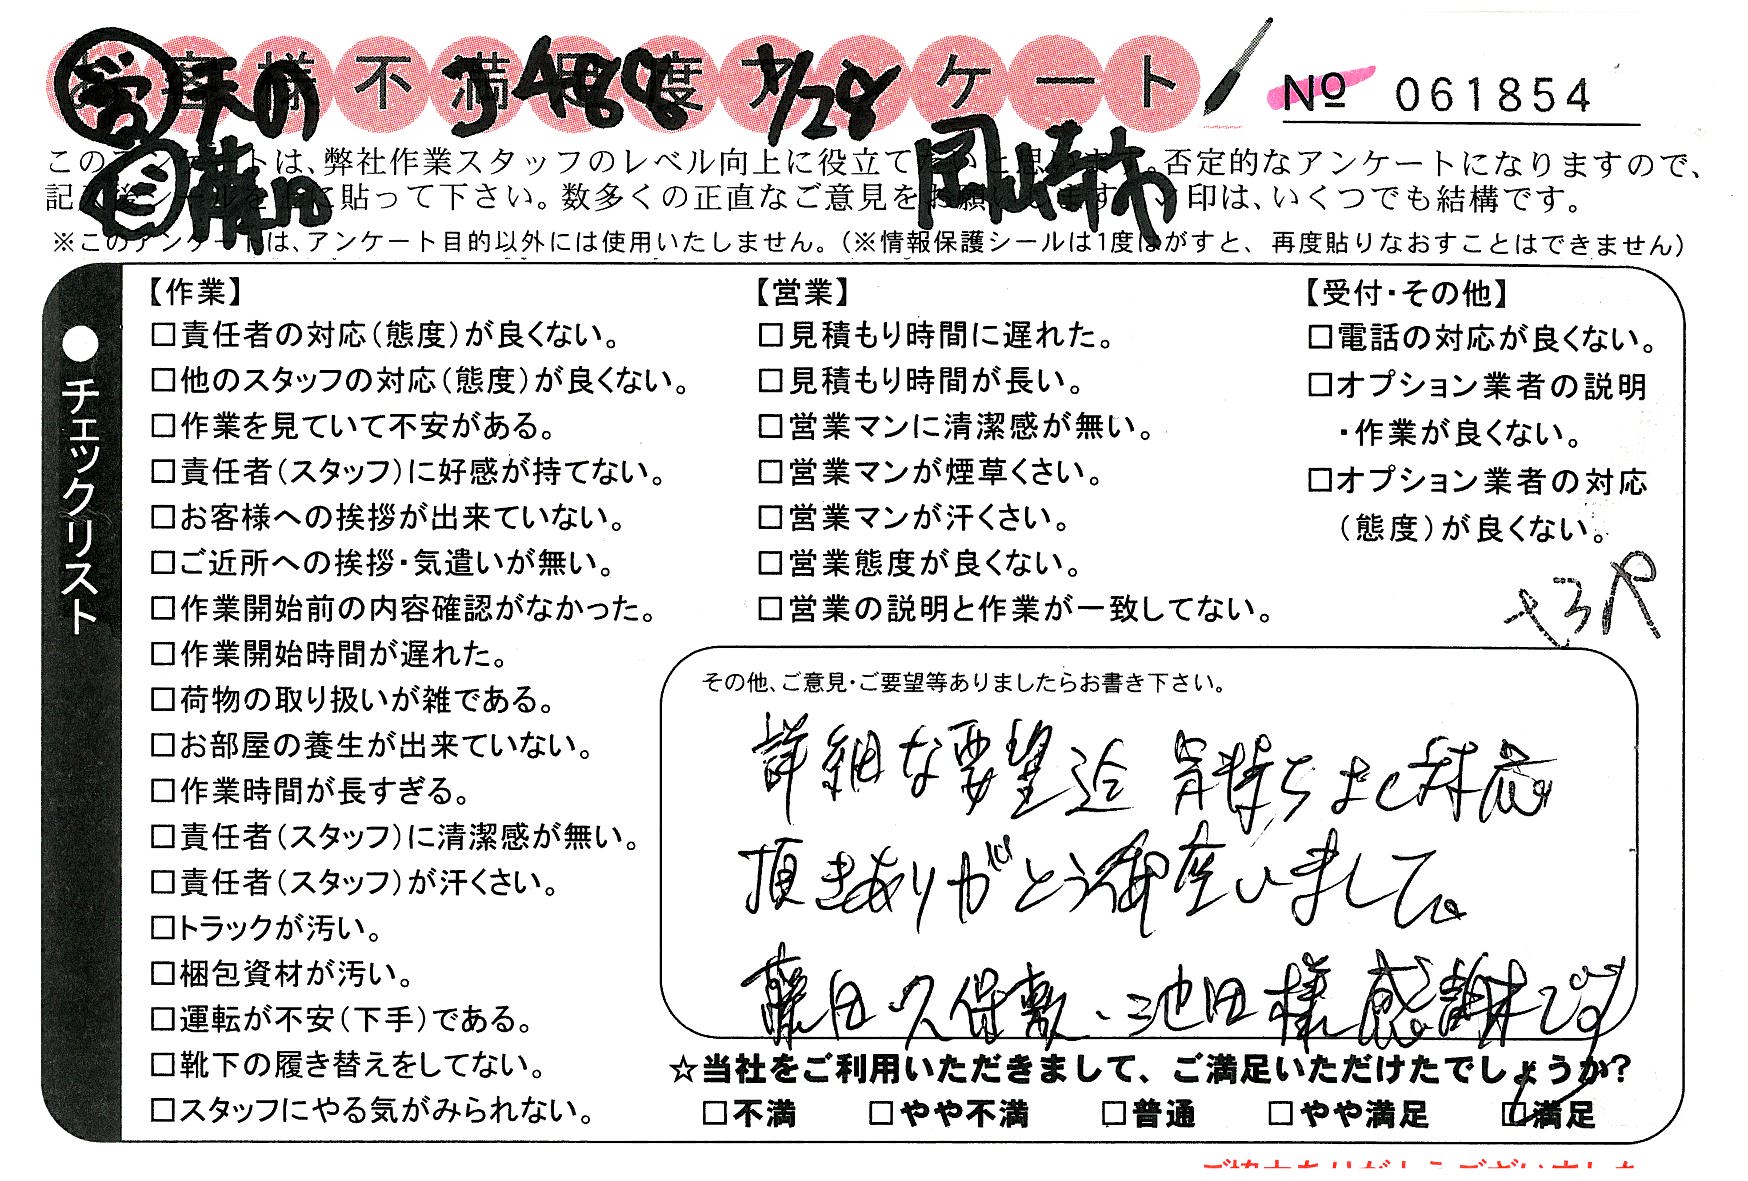 お客様不満足度アンケート
営 天の J488 7/28
№ 061854
このアンケートは、弊社作業スタッフのレベル向上に役立てたいと思います。否定的なアンケートになりますので、
記入後シールを上に貼って下さい。数多くの正直なご意見をお願いします。レ印は、いくつでも結構です。
藤田 岡崎市
※このアンケートは、アンケート目的以外には使用いたしません。（※情報保護シールは1度はがすと、再度貼りなおすことはできません）
●チェックリスト
【作業】
□責任者の対応（態度）が良くない。
□他のスタッフの対応（態度）が良くない。
□作業を見ていて不安がある。
□責任者（スタッフ）に好感が持てない。
□お客様への挨拶が出来ていない。
□ご近所への挨拶・気遣いが無い。
□作業開始前の内容確認がなかった。
□作業開始時間が遅れた。
□荷物の取り扱いが雑である。
□お部屋の養生が出来ていない。
□作業時間が長すぎる。
□責任者（スタッフ）に清潔感が無い。
□責任者（スタッフ）が汗くさい。
□トラックが汚い。
□梱包資材が汚い。
□運転が不安（下手）である。
□靴下の履き替えをしてない。
□スタッフにやる気がみられない。
【営業】
□見積もり時間に遅れた。
□見積もり時間が長い。
□営業マンに清潔感が無い。
□営業マンが煙草くさい。
□営業マンが汗くさい。
□営業態度が良くない。
□営業の説明と作業が一致してない。
【受付・その他】
□電話の対応が良くない。
□オプション業者の説明
・作業が良くない。
□オプション業者の対応
（態度）が良くない。
その他、ご意見・ご要望等ありましたらお書き下さい。
詳細な要望迄 気持ちよく対応
頂きありがとう御座いまして。
藤田・久保敷・池田様感謝です
☆当社をご利用いただきまして、ご満足いただけたでしょうか？
□不満 □やや不満 □普通 □やや満足 □満足
ご協力ありがとうございました